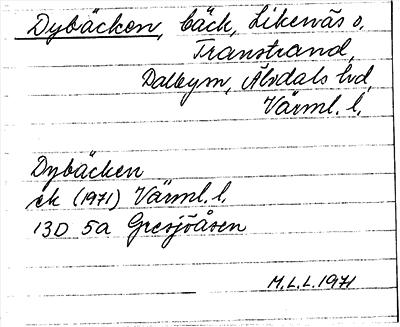 Dybäcken, bäck, Likenäs o.
Transtrand,
Dalbym, Älvdals hd,
Värml. l.
Dybäcken
ek (1971) Värml. l.
13D 5a Gresjöåsen
M.L.L. 1971